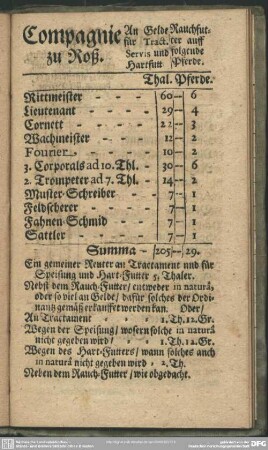 Compagnie
zu Roß.
An Gelde
für Tract.
Servis und
Hartfutt
Rauchfut-
ter auff
folgende
Pferde.
Thal. Pferde.
Rittmeister - - - 60 -- 6
Lieutenant - - - 29 -- 4
Cornett - - - 22 -- 3
Wachmeister - - - 12 -- 2
Fourier - - - 10 -- 2
3. Corporals ad 10. Thl. - 30 -- 6
2. Trompeter ad 7. Thl. - 14 -- 2
Muster-Schreiber - - 7 -- 1
Feldscherer - - - 7 -- 1
Fahnen-Schmid - - 7 -- 1
Sattler - - - 7 -- 1
Summa - 205 -- 29.
Ein gemeiner Reuter an Tractament und für
Speisung und Hart-Futter 5. Thaler.
Nebst dem Rauch-Futter / entweder in naturâ,
oder so viel an Gelde / dafür solches der Ordi-
nantz gemäß erkauffet werden kan. Oder /
An Tractament - - - 1. Th. 12. Gr.
Wegen der Speisung / wofern solche in naturâ
nicht gegeben wird / - - 1. Th. 12. Gr.
Wegen des Hart-Futters / wann solches auch
in naturâ nicht gegeben wird - 2. Th.
Neben dem Rauch-Futter / wie obgedacht.